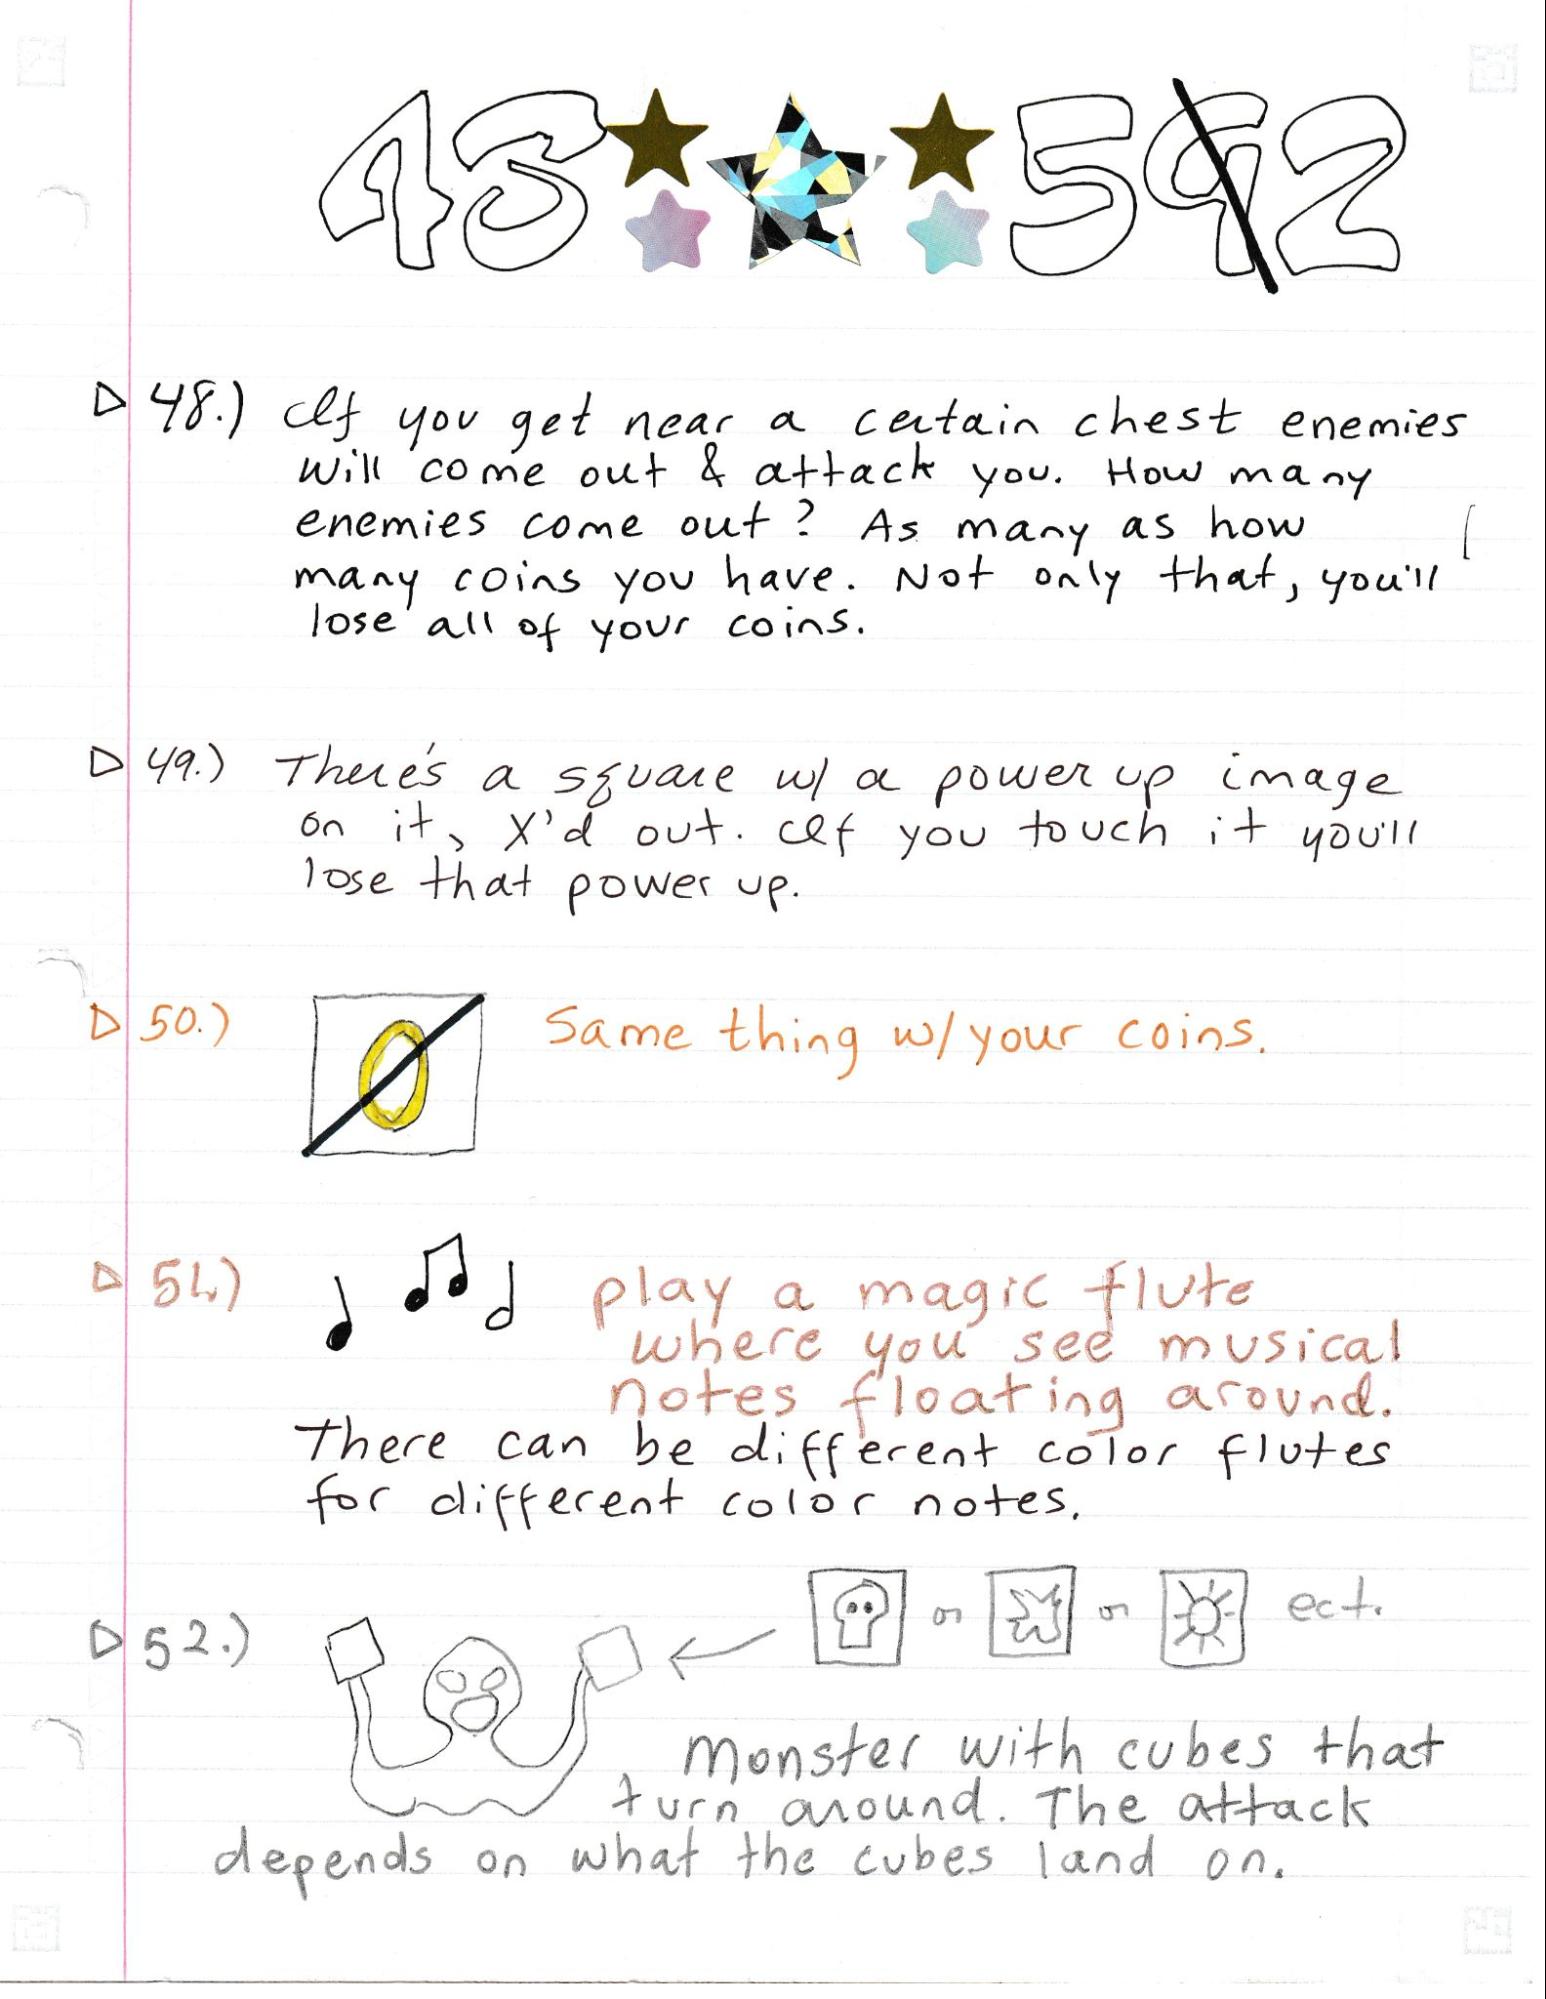 48 592
48.) If you get near a certain chest enemies
will come out & attack you. How many
enemies come out? As many as how
many coins you have. Not only that, you'll
lose all of your coins.
49.) There's a square w/ a power up image
on it, X'd out. If you touch it you'll
lose that power up.
50.) Same thing w/ your coins.
51.) play a magic flute
where you see musical
notes floating around.
There can be different color flutes
for different color notes.
or or ect.
52.)
Monster with cubes that
turn around. The attack
depends on what the cubes land on.